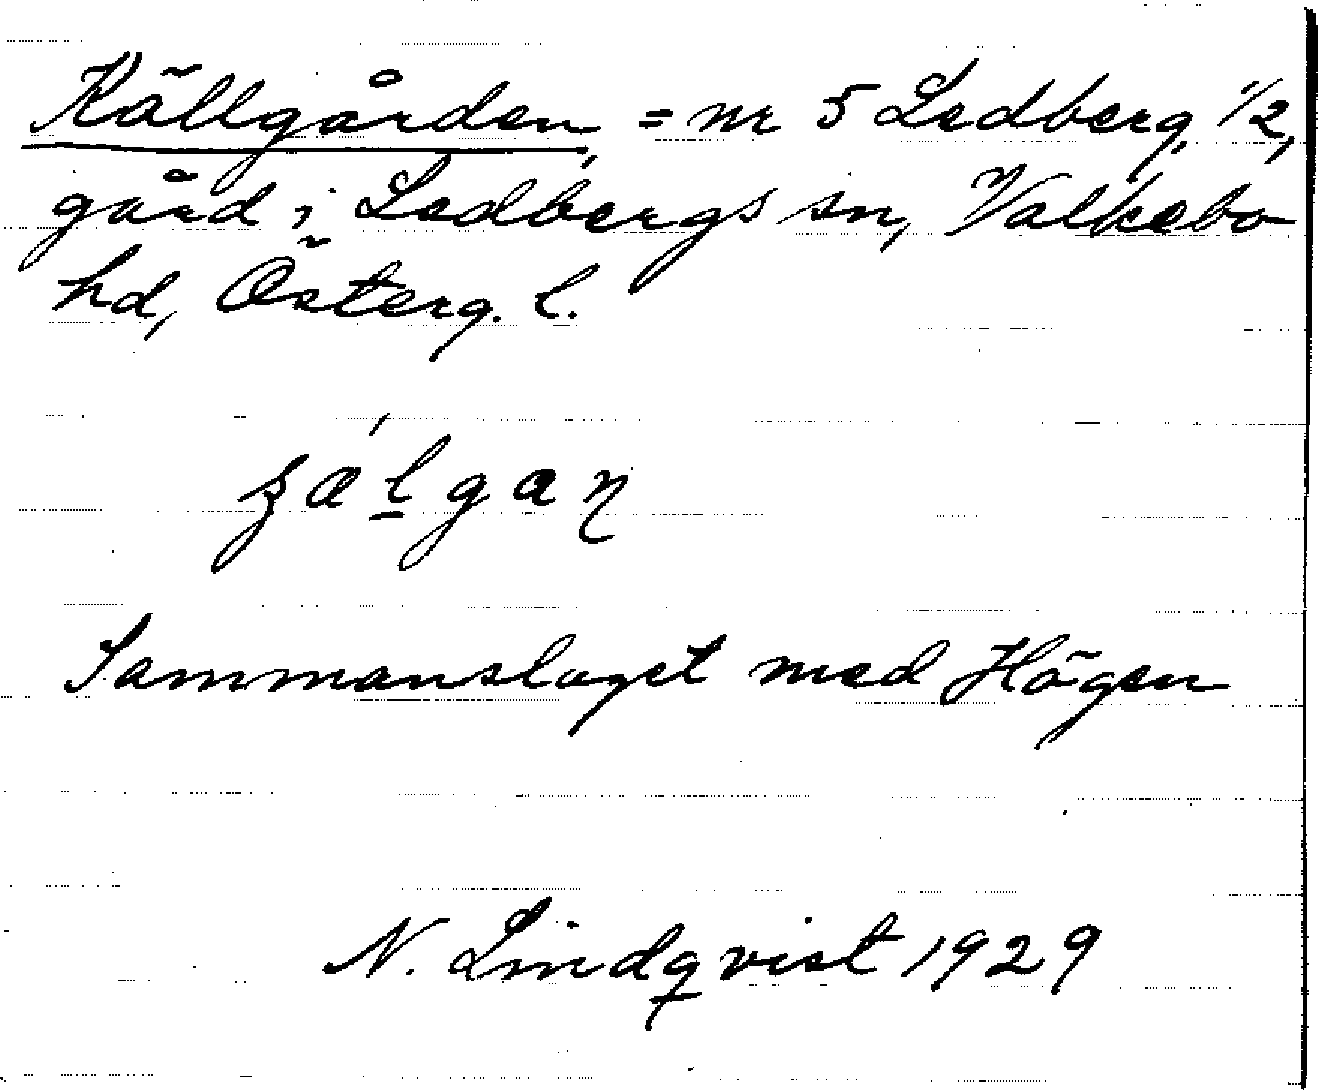 Källgården, = nr 5 Ledberg, 1/2,
gård i Ledbergs sn, Valkebo
hd, Österg. l.
Sammanslaget med Högen
N. Lindqvist 1929